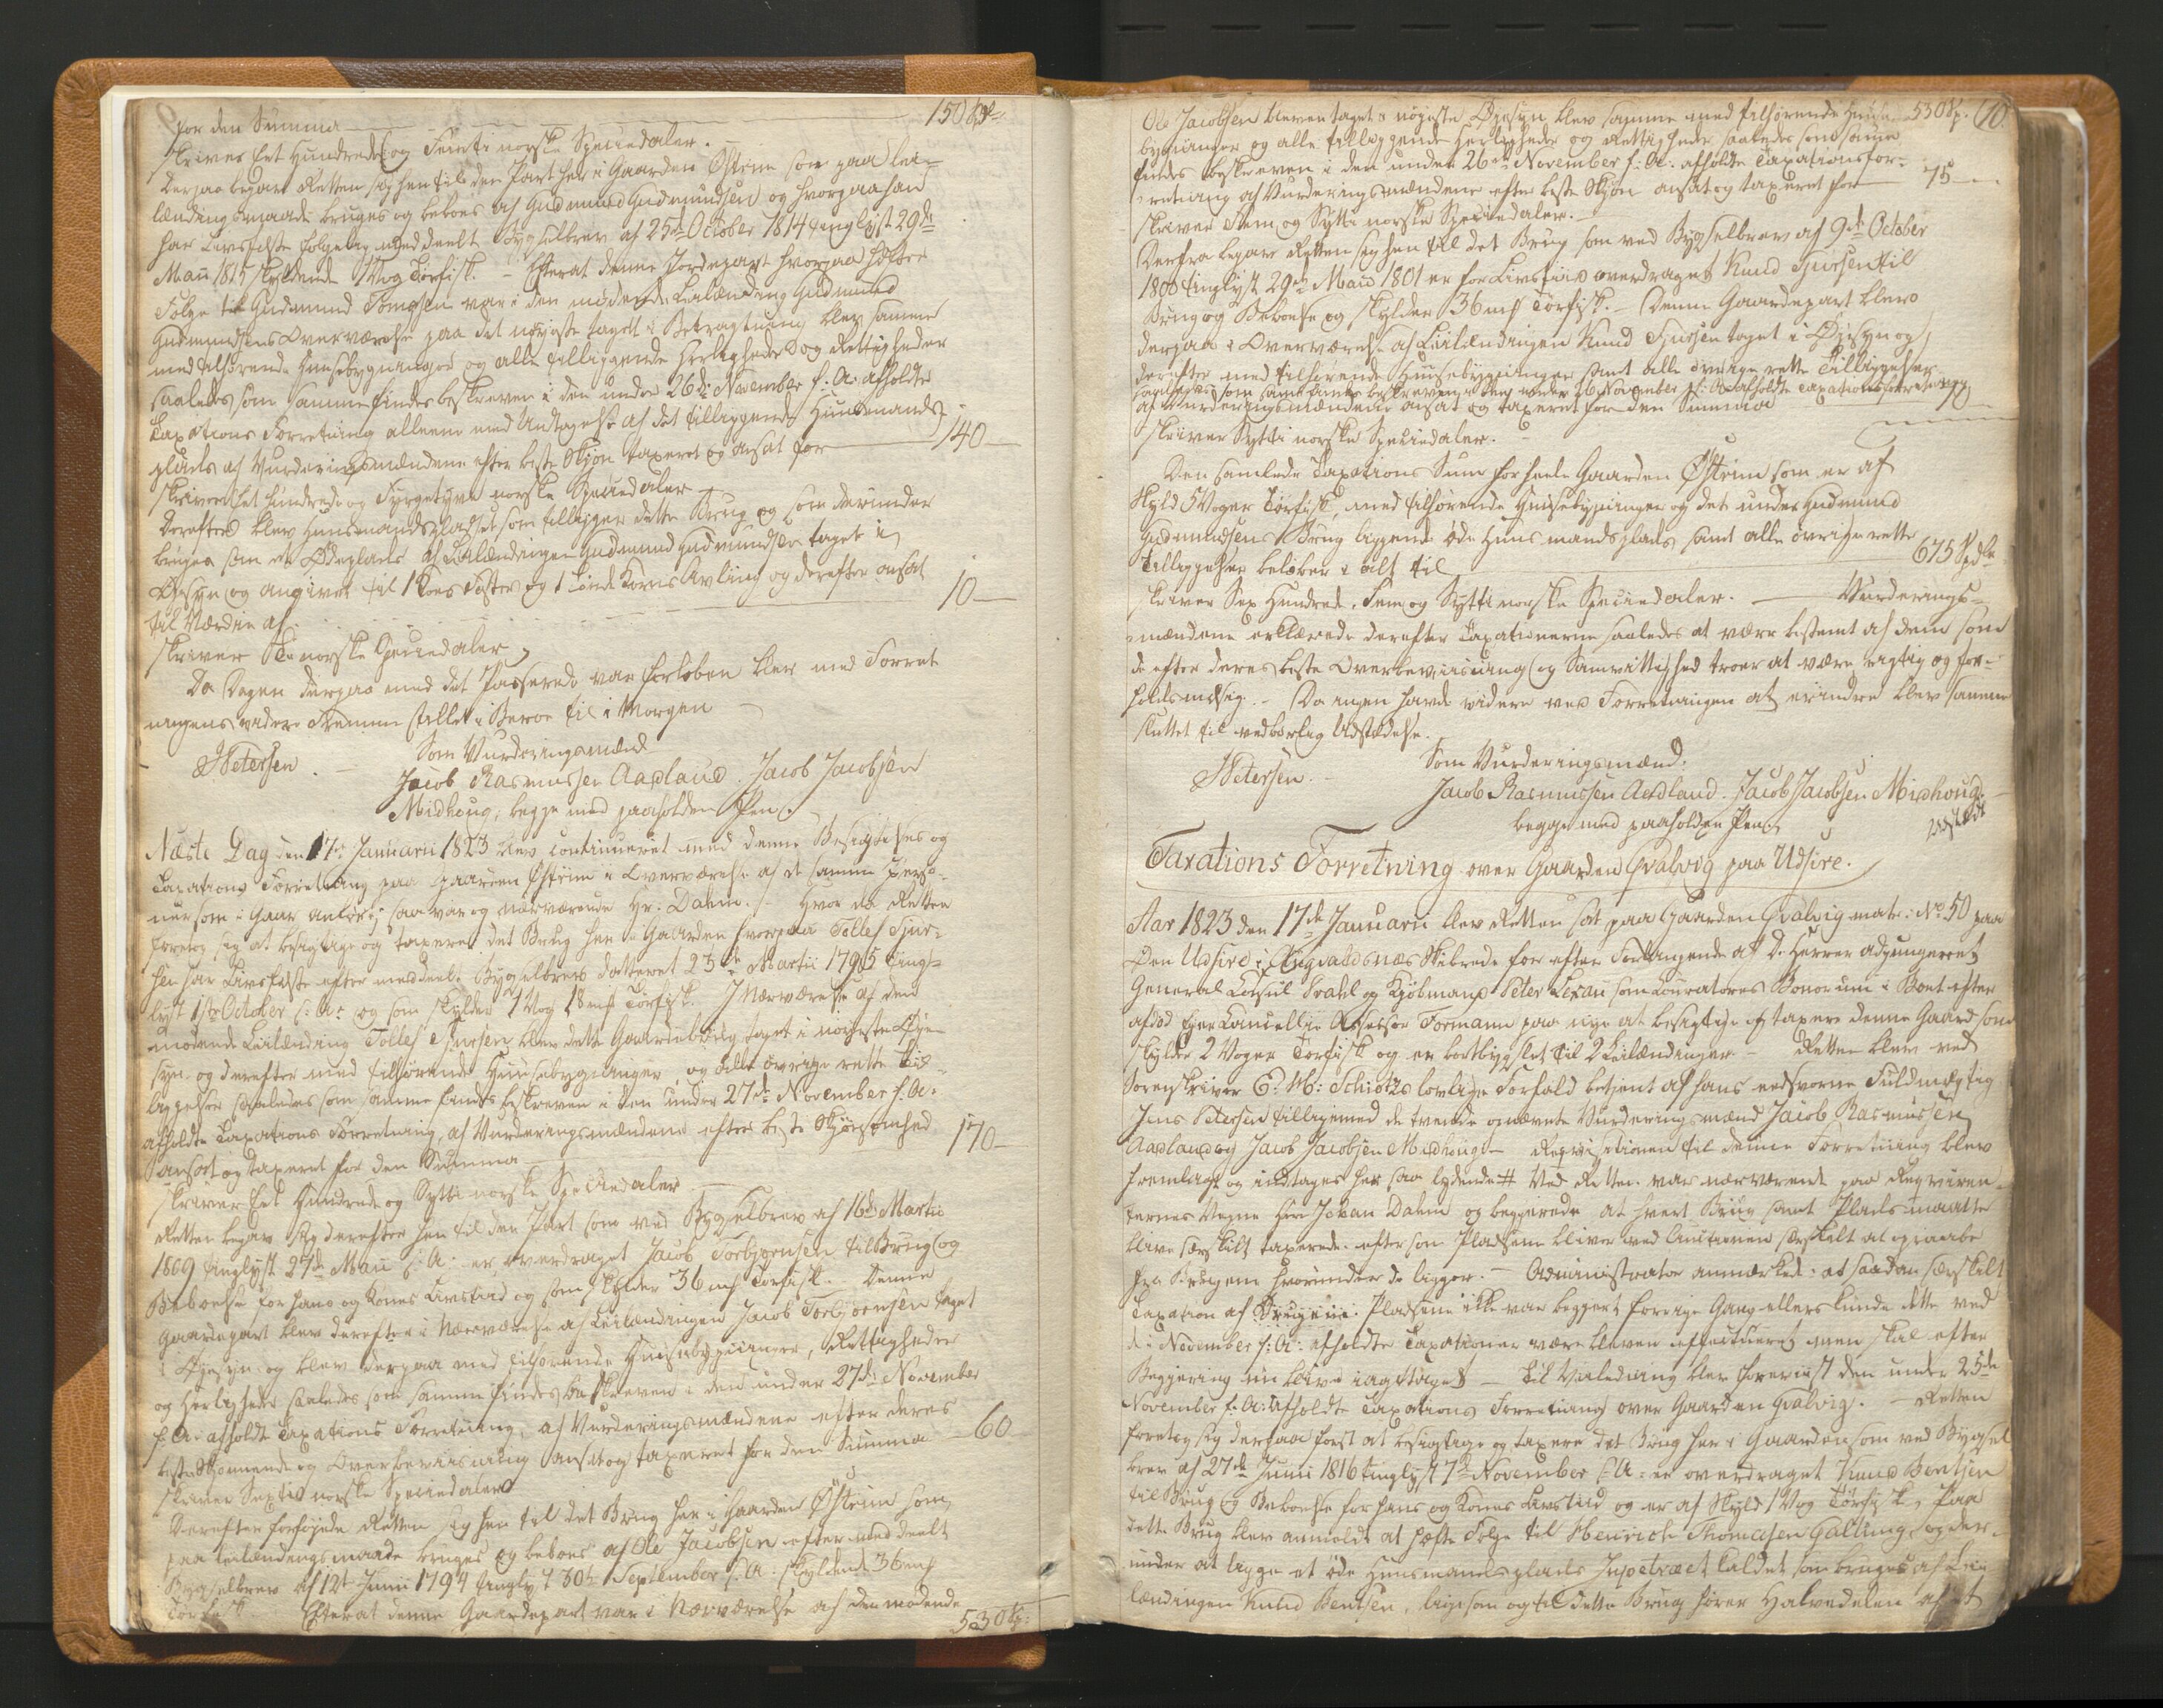 for den Summa 150 Spd
skriver Eet Hundrede og Femti norske Speciedaler.
Derpaa begav Retten sig hen til den Part her i Gaarden Østrim som paa Lei-
lændingsmaade bruges og beboes af Gudmund Gudmundsen og hvorpaa han
har Livsfæste følgelig meddeelt Bygselbrev af 25de October 1814 tinglyst 29de
Maii 1815 skyldende 1 Vog Tørfisk. – Efterat denne Jordepart hvorpaa hæfter
Følge til Gudmund Tomesen var i den mødende Leilænding Gudmund
Gudmundsens Overværelse paa det nøyeste taget i Betragtning blev samme
med tilhørende Huusebygninger og alle tilliggende Herligheder og Rettigheder
saaledes som samme findes beskreven i den under 26de November f: A: afholdte
Taxations Forretning alleene med Undtagelse af det tilliggende Huusmands-
plads af Vurderingsmændene efter beste Skjøn taxeret og ansat for 140
skriver Eet hundrede og Fyrgetyve norske Speciedaler
Derefter blev Huusmandspladset som tilligger dette Brug og som derunder
bruges som en Ødeplads af Leilændingen Gudmund Gudmundsen taget i
Øjesyn og angivet til 1 Koes Foster og 1 Tønde Korns Avling og derefter ansat
til Værdie af 10
skriver Ti norske Speciedaler
Da Dagen derpaa med det Passerede var forløben blev med Forret-
ningens videre Fremme stillet i Beroe til i Morgen
JPetersen. Som Vurderingsmænd
Jacob Rasmussen Aadland. Jacob Jacobsen
Midhoug; begge med paaholden Pen.
Næste Dag den 17de Januarii 1823 blev continueret med denne Besigtelses og
Taxations Forretning paa Gaarden Østrim i Overværelse af de samme Perso-
ner som i Gaar anført; saa var og nærværende Hr: Dahm. – Hvor da Retten
foretog sig at besigtige og taxere det Brug her i Gaarden hvorpaa Tolles Sjur-
sen har Livsfæste efter meddeelt Bygselbrev datteret 23de Martii 1795 ting-
lyst 1ste October s: A: og som skylder 1 Vog 18 mk Tørfisk. I Nærværelse af den
mødende Leilænding Tolles Sjursen blev dette Gaardebrug taget i nøyeste Øje-
syn og derefter med tilhørende Huusebygninger, og alle øvrige rette Til-
læggelser saaledes som samme findes beskreven i den under 27de November f: A:
afholdte Taxations Forretning, af Vurderingsmændene efter beste Skjønsomhed 170
ansat og taxeret for den Summa
skriver Eet Hundrede og Sytti norske Speciedaler
Retten begav sig derefter hen til den Part som ved Bygselbrev af 16de Martii
1809 tinglyst 27de Maii s: A: er overdraget Jacob Torbjørnsen til Brug og
Beboelse for hans og Kones Livstiid og som skylder 36 mk Tørfisk. Denne
Gaardepart blev derefter i Nærværelse af Leilændingen Jacob Torbjørnsen taget
i Øjesyn og blev derpaa med tilhørende Huusebygninger, Rettigheder
og Herligheder saaledes som samme findes beskreven i den under 27de November
f: A: afholdte Taxations Forretning, af Vurderingsmændene efter deres
beste Skjønnende og Overbeviisning ansat og taxeret for den Summa 60
skriver Sexti norske Speciedaler
Derefter forføyede Retten sig hen til det Brug her i Gaarden Østrim som
paa Leilændingsmaade bruges og beboes af Ole Jacobsen efter meddeelt
Bygselbrev af 12te Junii 1794 tinglyst 30te September s: A: skyldende 36 mk
Tørfisk. Efterat denne Gaardepart var i Nærværelse af den mødende
530 Sp:
Ole Jacobsen bleven taget i nøyeste Øjesyn blev samme med tilhørende Huuse- 530 Sp. 10.
bygninger og alle tilliggende Herligheder og Rettigheder saaledes som samme
findes beskreven i den under 26de November f: A: afholdte Taxationsfor-
retning af Vurderingsmændene efter beste Skjøn ansat og taxeret for 75
skriver Fem og Sytti norske Speciedaler.
Derfra begav Retten sig hen til det Brug som ved Bygselbrev af 9de October
1800 tinglyst 29de Maii 1801 er for Livstiid overdraget Knud Sjursen til
Brug og Beboelse og skylder 36 mk Tørfisk. – Denne Gaardepart blev
derpaa i Overværelse af Leilændingen Knud Sjursen taget i Øjesyn og
derefter med tilhørende Huusebygninger samt alle øvrige rette Tilliggelser
saaledes som samme findes beskreven i den under 26 November f: A: afholdte Taxationsforretning
af Vurderingsmændene ansat og taxeret for den Summa 70
skriver Sytti norske Speciedaler.
Den samlede Taxations Sum for heele Gaarden Østrim som er af
Skyld 5 Voger Tørfisk, med tilhørende Huusebygninger og det under Gudmund
Gudmundsens Brug liggende øde Huusmandsplads samt alle øvrige rette
Tilliggelser beløber i alt til 675 Spdlr
skriver Sex Hundrede, Fem og Sytti norske Speciedaler. – Vurderings-
mændene erklærede derefter Taxationerne saaledes at være bestemt af dem som
de efter deres beste Overbeviisning og Samvittighed troer at være rigtig og for-
holdsmæsig. – Da ingen havde videre ved Forretningen at erindre blev samme
sluttet til vedbørlig Udstædelse.
JPetersen. Som Vurderingsmænd:
Jacob Rasmussen Aadland. Jacob Jacobsen Midhoug.
begge med paaholden Pen.
udstædt
Taxations Forretning over Gaarden Qvalvig paa Udsire.
Aar 1823 den 17de Januarii blev Retten sat paa Gaarden Qvalvig matr: No 50 paa
Øen Udsire i Augvaldsnæs Skibrede for efter Forlangende af D. Herrer adjungeret
General Consul Svahl og Kjøbmand Peter Lexau som Couratores Bonorum i Boet efter
afdød Eyer Cancellie Assessor Formann paa nye at besigtige og taxere denne Gaard som
skylder 2 Voger Tørfisk og er bortbygslet til 2 Leilændinger – Retten blev ved
Sorenskriver E: M: Schiøtzs lovlige Forfald betjent af hans eedsvorne Fuldmægtig
Jens Petersen tilligemed de tvende opnævnte Vurderingsmænd Jacob Rasmussen
Aadland og Jacob Jacobsen Midhoug – Reqvisitionen til denne Forretning blev
fremlagt og indtages her saa lydende # Ved Retten var nærværende paa Reqviren-
ternes Vegne Herr Johan Dahm og begjerede at hvert Brug samt Plads maatte
blive særskilt taxerede eftersom Pladsene bliver ved Auctionen særskilt at opraabe
fra Brugene hvorunder de ligger. – Administrator anmærkede: at saadan særskilt
Taxation af Brugene Pladsene ikke var begjert forrige Gang ellers kunde dette ved
de i November f: A: afholdte Taxationer være bleven effectueret men skal efter
Begjering nu blive iagttaget – Til Veiledning blev foreviist den under 25de
November f: A: afholdte Taxations Forretning over Gaarden Qvalvig. – Retten
foretog sig derpaa først at besigtige og taxere det Brug her i Gaarden som ved Bygsel
brev af 27de Junii 1816 tinglyst 7de November s: A: er overdraget Knud Bentsen
til Brug og Beboelse for hans og Kones Livstiid og er af Skyld 1 Vog Tørfisk, Paa
dette Brug blev anmeldt at hæfte Følge til Henrich Thomesen Galtung, og der-
under at ligge et øde Huusmandsplads kaldet som bruges af Lei-
lændingen Knud Bentsen, ligesom og til dette Brug hører Halvedelen af et